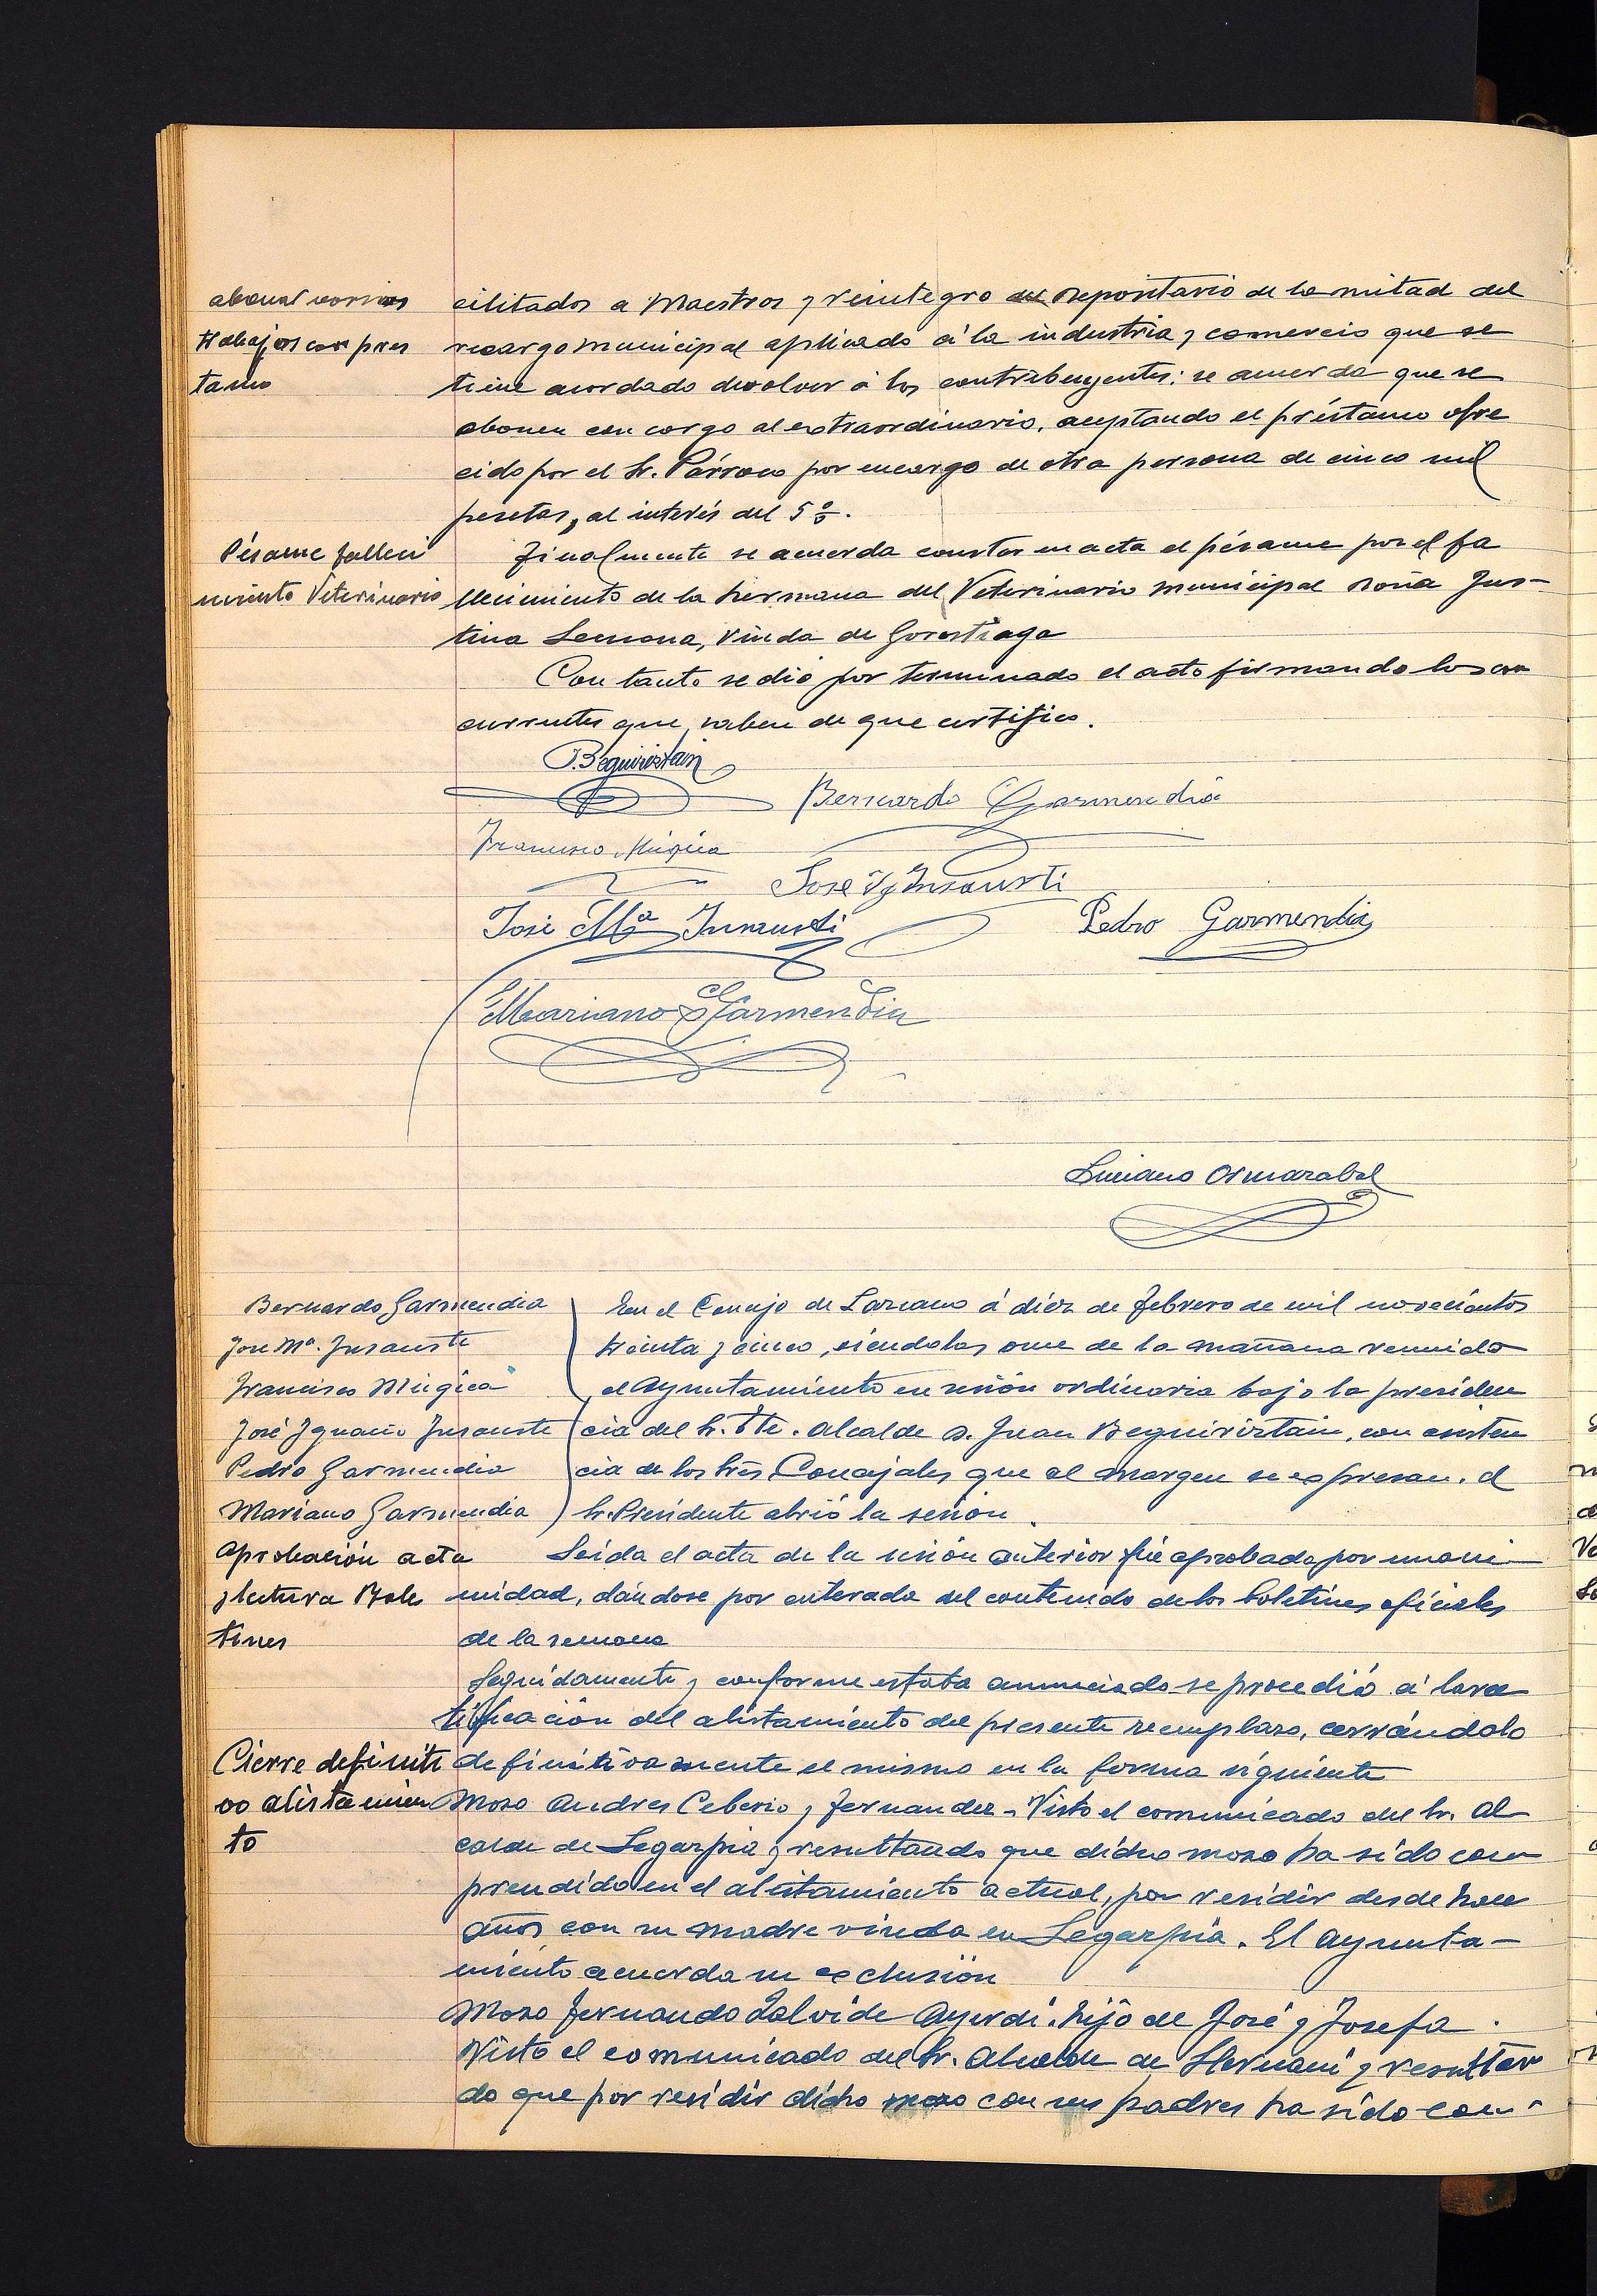 abonar varios
trabajos con pres
tamo
cilitados a Maestros y reintegro del Depositario de la mitad del
recargo municipal aplicado á la industria y comercio que se
tiene acordado devolver á los contribuyentes: se acuerda que se
abonen con cargo al extraordinario, aceptando el préstamo ofre
cido por el Sr. Párroco por encargo de otra persona de cinco mil
pesetas, al interés del 5 %.
Pésame falleci
miento Veterinario
Finalmente se acuerda constar en acta el pésame por el fa
llecimiento de la hermana del Veterinario municipal Doña Jus-
tina Lecuona, Viuda de Gorostiaga
Con tanto se dió por terminado el acto firmando los con
currentes que saben de que certifico.
J. Beguiristain
Bernardo Garmendia
Francisco Múgica
José Ig Insausti
José Mª Insausti
Pedro Garmendia
Mariano Garmendia
Luciano Ormazabal
Bernardo Garmendia
José Mª. Insausti
Francisco Múgica
José Ignacio Insausti
Pedro Garmendia
Mariano Garmendia
En el Concejo de Lazcano á diez de febrero de mil novecientos
treinta y cinco, siendo las once de la mañana reunido
el Ayuntamiento en sesión ordinaria bajo la presiden
cia del Sr. Tte. Alcalde D. Juan Beguiristain, con asisten
cia de los Sres. Concejales que al margen se expresan. el
Sr. Presidente abrió la sesión.
Aprobación acta
y lectura Bole
tines
Leida el acta de la sesión anterior fué aprobada por unani-
midad, dándose por enterado del contenido de los boletines oficiales
de la semana
Seguidamente y conforme estaba anunciado se procedió á la rec
tificación del alistamiento del presente reemplazo, cerrándolo
Cierre definiti
vo alistamien
to
definitivamente el mismo en la forma siguiente
Mozo Andres Ceberio y Fernandez - Visto el comunicado del Sr. Al
calde de Legazpia y resultando que dicho mozo ha sido com
prendido en el alistamiento actual, por residir desde hace
años con su madre viuda en Legazpia. El Ayunta-
miento acuerda su exclusión
Mozo Fernando Zalvide Ayerdi. hijo de José y Josefa.
Visto el comunicado del Sr. Alcalde de Hernani y resultan
do que por residir dicho mozo con sus padres ha sido com-